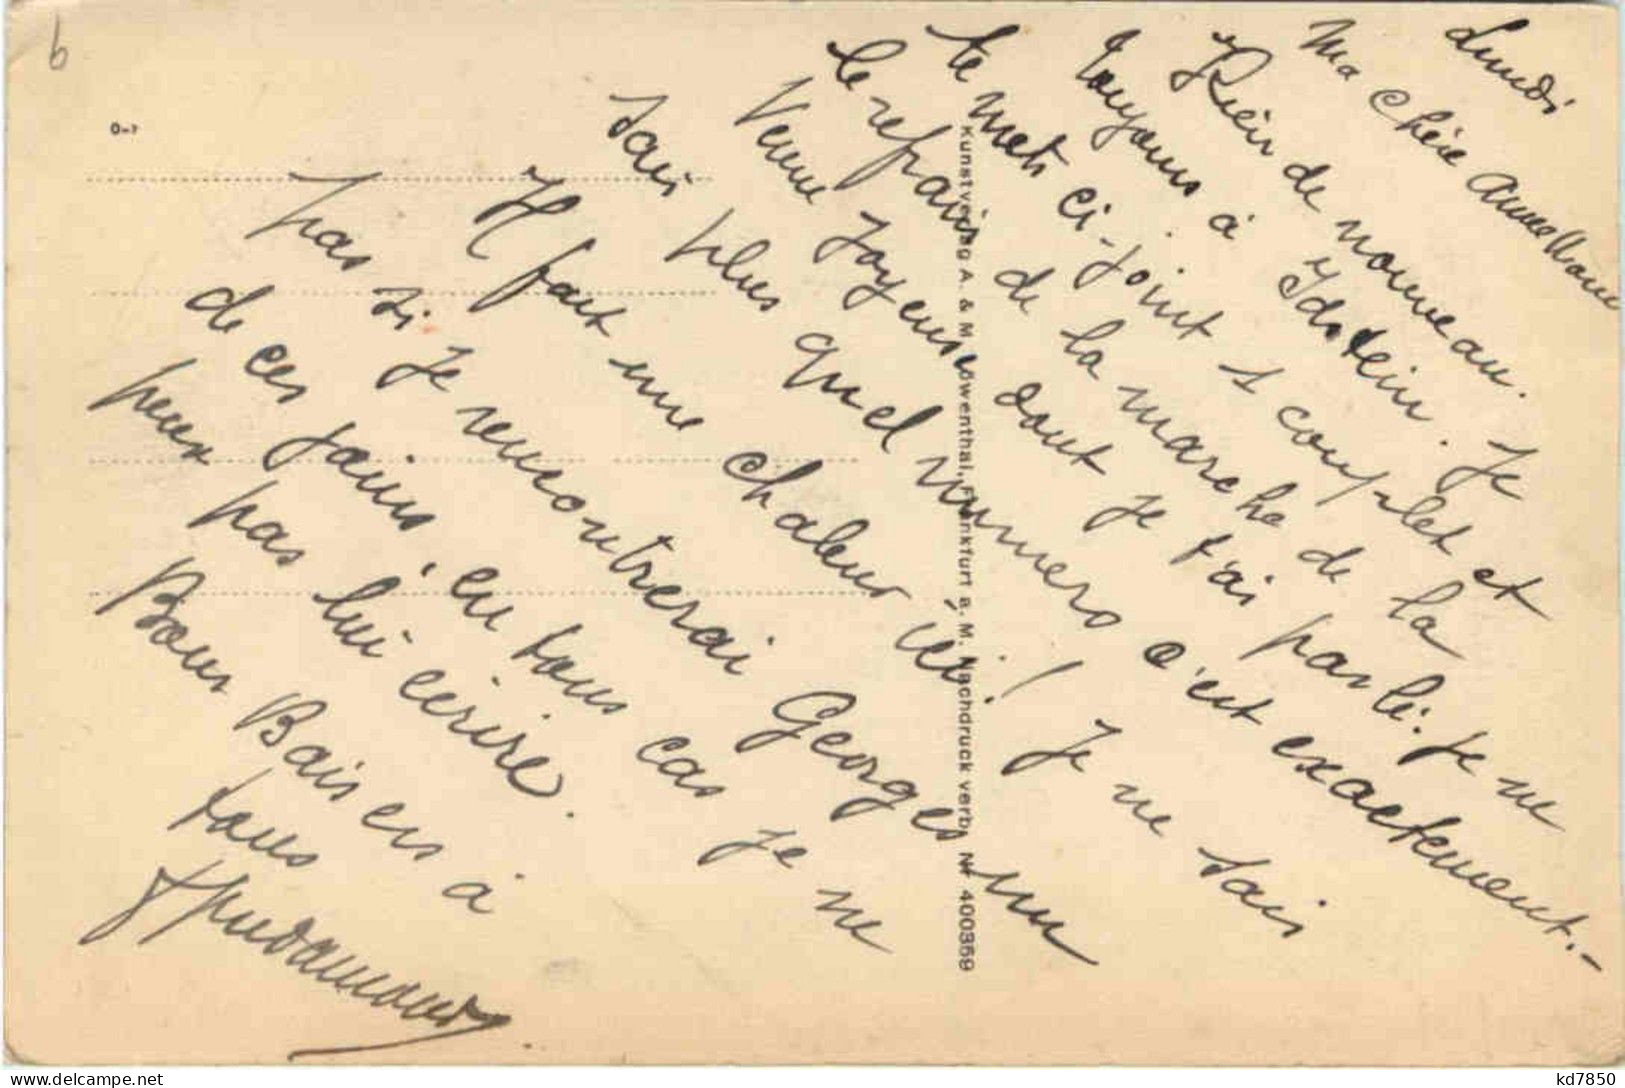 Lundi
Ma Chère
Rien de nouveau.
toujours à Idstein. Je
te mets ci-joint 1 couplet et
le refrain de la marche de la
Veuve Joyeuse dont je t'ai parlé. je ne
sais plus quel numero c'est exactement.-
Il fait une chaleur ici! Je ne sais
pas si je rencontrerai Georges un
de ces jours, en tous cas je ne
peux pas lui écrire.
Bons Baisers à
tous
Kunstverlag A. & M. Löwenthal, Frankfurt a. M. Nachdruck verb. Nr. 400359
6
kd7850